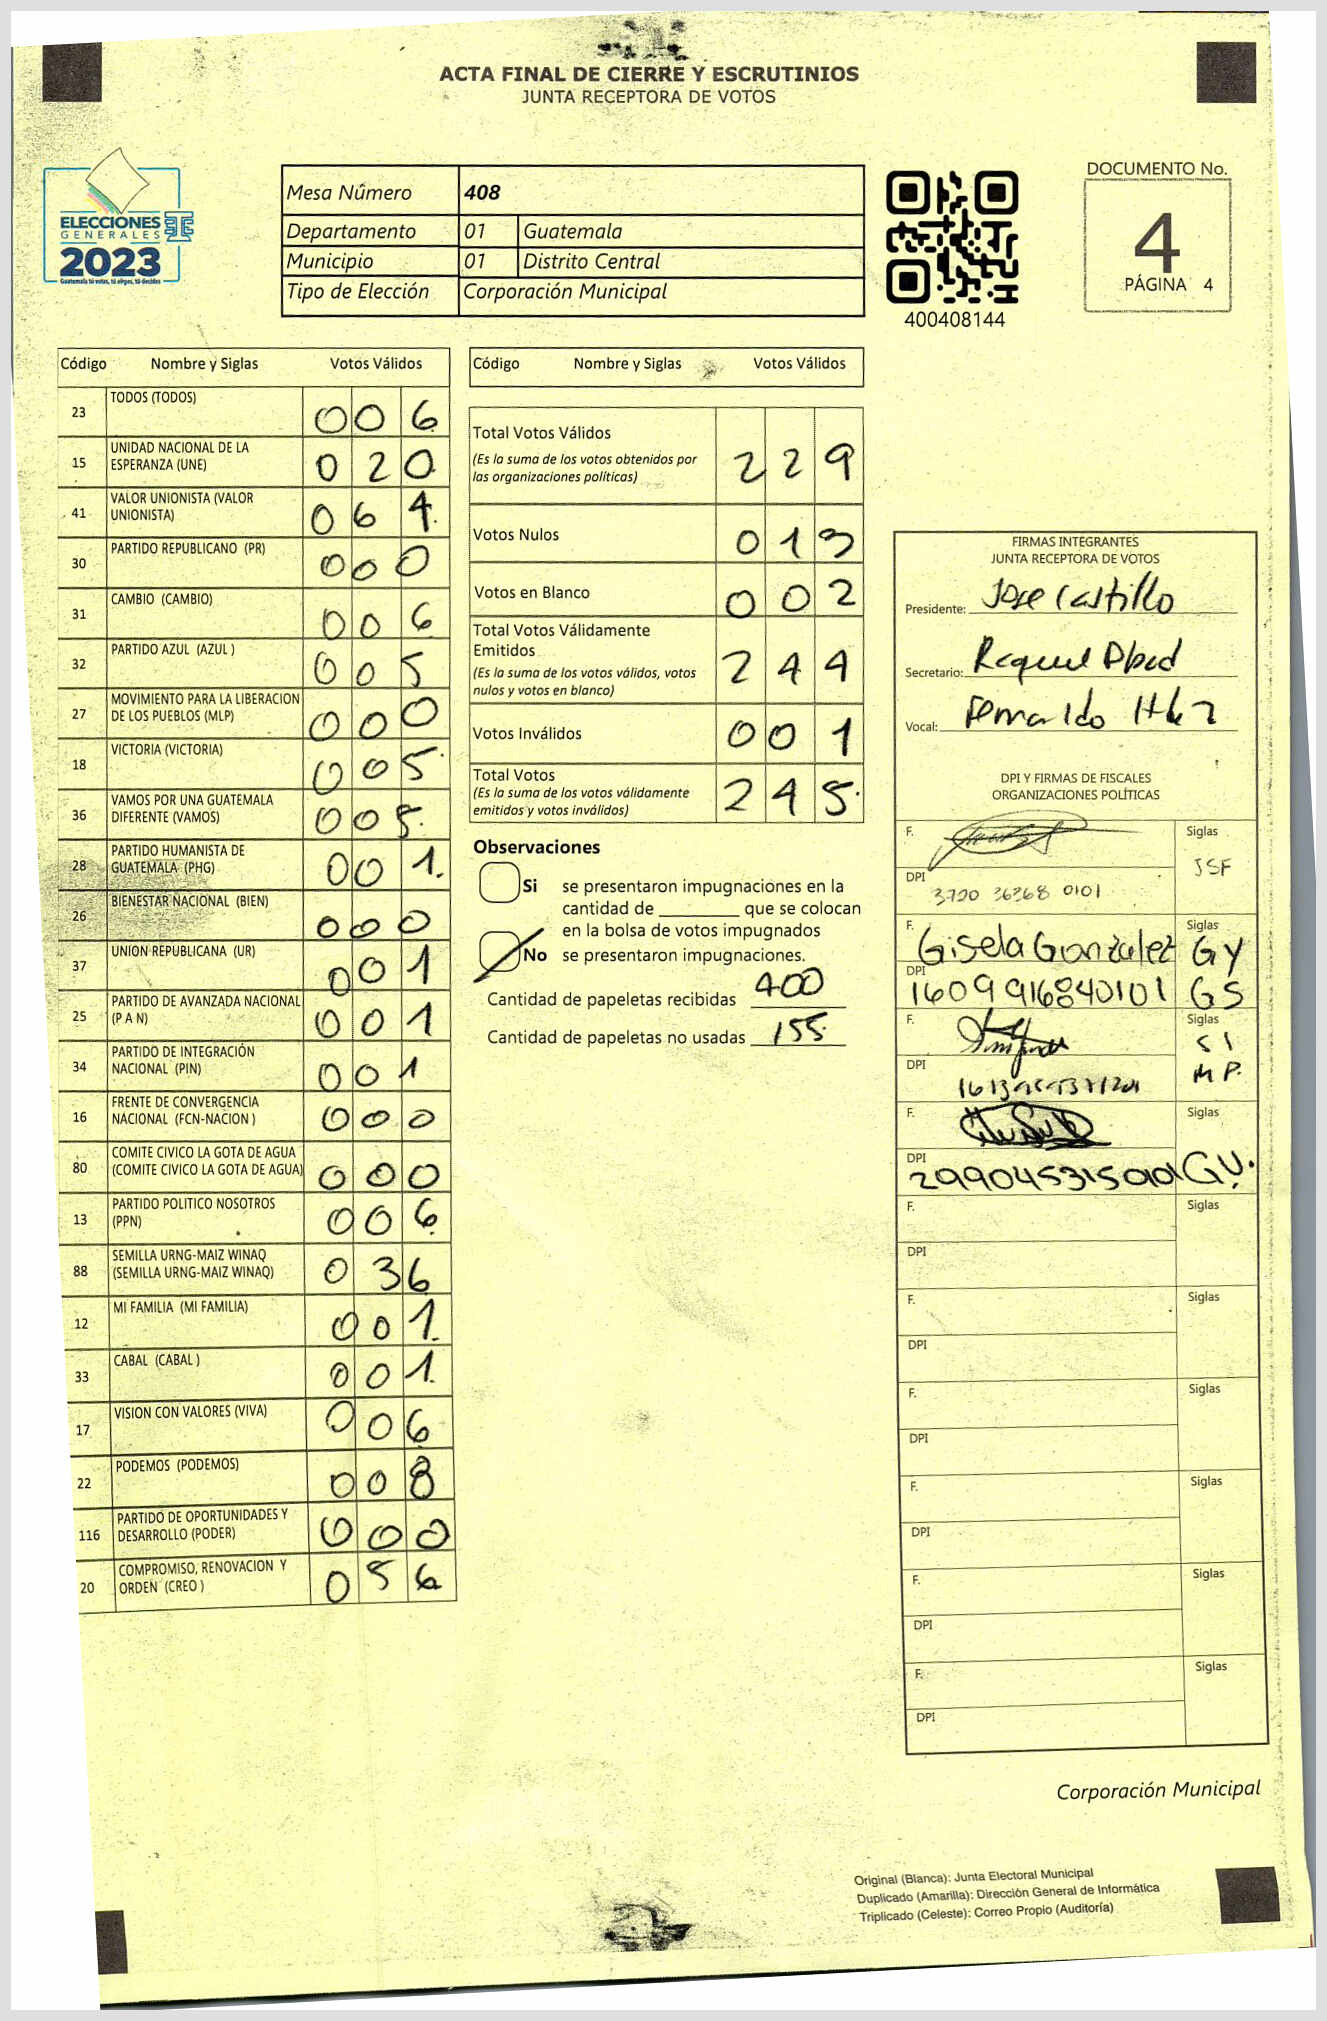 ACTA FINAL DE CIERRE Y ESCRUTINIOS
JUNTA RECEPTORA DE VOTOS
ELECCIONES
GENERALES
2023
Guatemala tú votas, tú eliges, tú decides
Mesa Número 408
Departamento 01 Guatemala
Municipio 01 Distrito Central
Tipo de Elección Corporación Municipal
400408144
DOCUMENTO No.
4
PÁGINA 4
Código Nombre y Siglas Votos Válidos
23 TODOS (TODOS) 0 0 6
15 UNIDAD NACIONAL DE LA
ESPERANZA (UNE) 0 2 0
41 VALOR UNIONISTA (VALOR
UNIONISTA) 0 6 4
30 PARTIDO REPUBLICANO (PR) 0 0 0
31 CAMBIO (CAMBIO) 0 0 6
32 PARTIDO AZUL (AZUL ) 0 0 5
27 MOVIMIENTO PARA LA LIBERACION
DE LOS PUEBLOS (MLP) 0 0 0
18 VICTORIA (VICTORIA) 0 0 5
36 VAMOS POR UNA GUATEMALA
DIFERENTE (VAMOS) 0 0 5
28 PARTIDO HUMANISTA DE
GUATEMALA (PHG) 0 0 1
26 BIENESTAR NACIONAL (BIEN) 0 0 0
37 UNION REPUBLICANA (UR) 0 0 1
25 PARTIDO DE AVANZADA NACIONAL
(P A N) 0 0 1
34 PARTIDO DE INTEGRACIÓN
NACIONAL (PIN) 0 0 1
16 FRENTE DE CONVERGENCIA
NACIONAL (FCN-NACION ) 0 0 0
80 COMITE CIVICO LA GOTA DE AGUA
(COMITE CIVICO LA GOTA DE AGUA) 0 0 0
13 PARTIDO POLITICO NOSOTROS
(PPN) 0 0 6
88 SEMILLA URNG-MAIZ WINAQ
(SEMILLA URNG-MAIZ WINAQ) 0 3 6
12 MI FAMILIA (MI FAMILIA) 0 0 1
33 CABAL (CABAL ) 0 0 1
17 VISION CON VALORES (VIVA) 0 0 6
22 PODEMOS (PODEMOS) 0 0 8
116 PARTIDO DE OPORTUNIDADES Y
DESARROLLO (PODER) 0 0 0
20 COMPROMISO, RENOVACION Y
ORDEN (CREO ) 0 5 6
Código Nombre y Siglas Votos Válidos
Total Votos Válidos 2 2 9
(Es la suma de los votos obtenidos por
las organizaciones políticas)
Votos Nulos 0 1 3
Votos en Blanco 0 0 2
Total Votos Válidamente
Emitidos 2 4 4
(Es la suma de los votos válidos, votos
nulos y votos en blanco)
Votos Inválidos 0 0 1
Total Votos 2 4 5
(Es la suma de los votos válidamente
emitidos y votos inválidos)
Observaciones
Si se presentaron impugnaciones en la
cantidad de ________ que se colocan
en la bolsa de votos impugnados
No se presentaron impugnaciones.
Cantidad de papeletas recibidas 400
Cantidad de papeletas no usadas 155
FIRMAS INTEGRANTES
JUNTA RECEPTORA DE VOTOS
Presidente: Jose Castillo
Secretario: Raquel
Vocal:
DPI Y FIRMAS DE FISCALES
ORGANIZACIONES POLÍTICAS
F. Siglas
JSF
DPI 3720 36368 0101
F. Gisela Gonzalez Siglas GY
DPI 1609 916840101 GS
F. Siglas
S I
DPI M P.
F. Siglas
DPI 2990453150101 G.V.
F. Siglas
DPI
F. Siglas
DPI
F. Siglas
DPI
F. Siglas
DPI
F. Siglas
DPI
F. Siglas
DPI
Corporación Municipal
Original (Blanca): Junta Electoral Municipal
Duplicado (Amarilla): Dirección General de Informática
Triplicado (Celeste): Correo Propio (Auditoría)